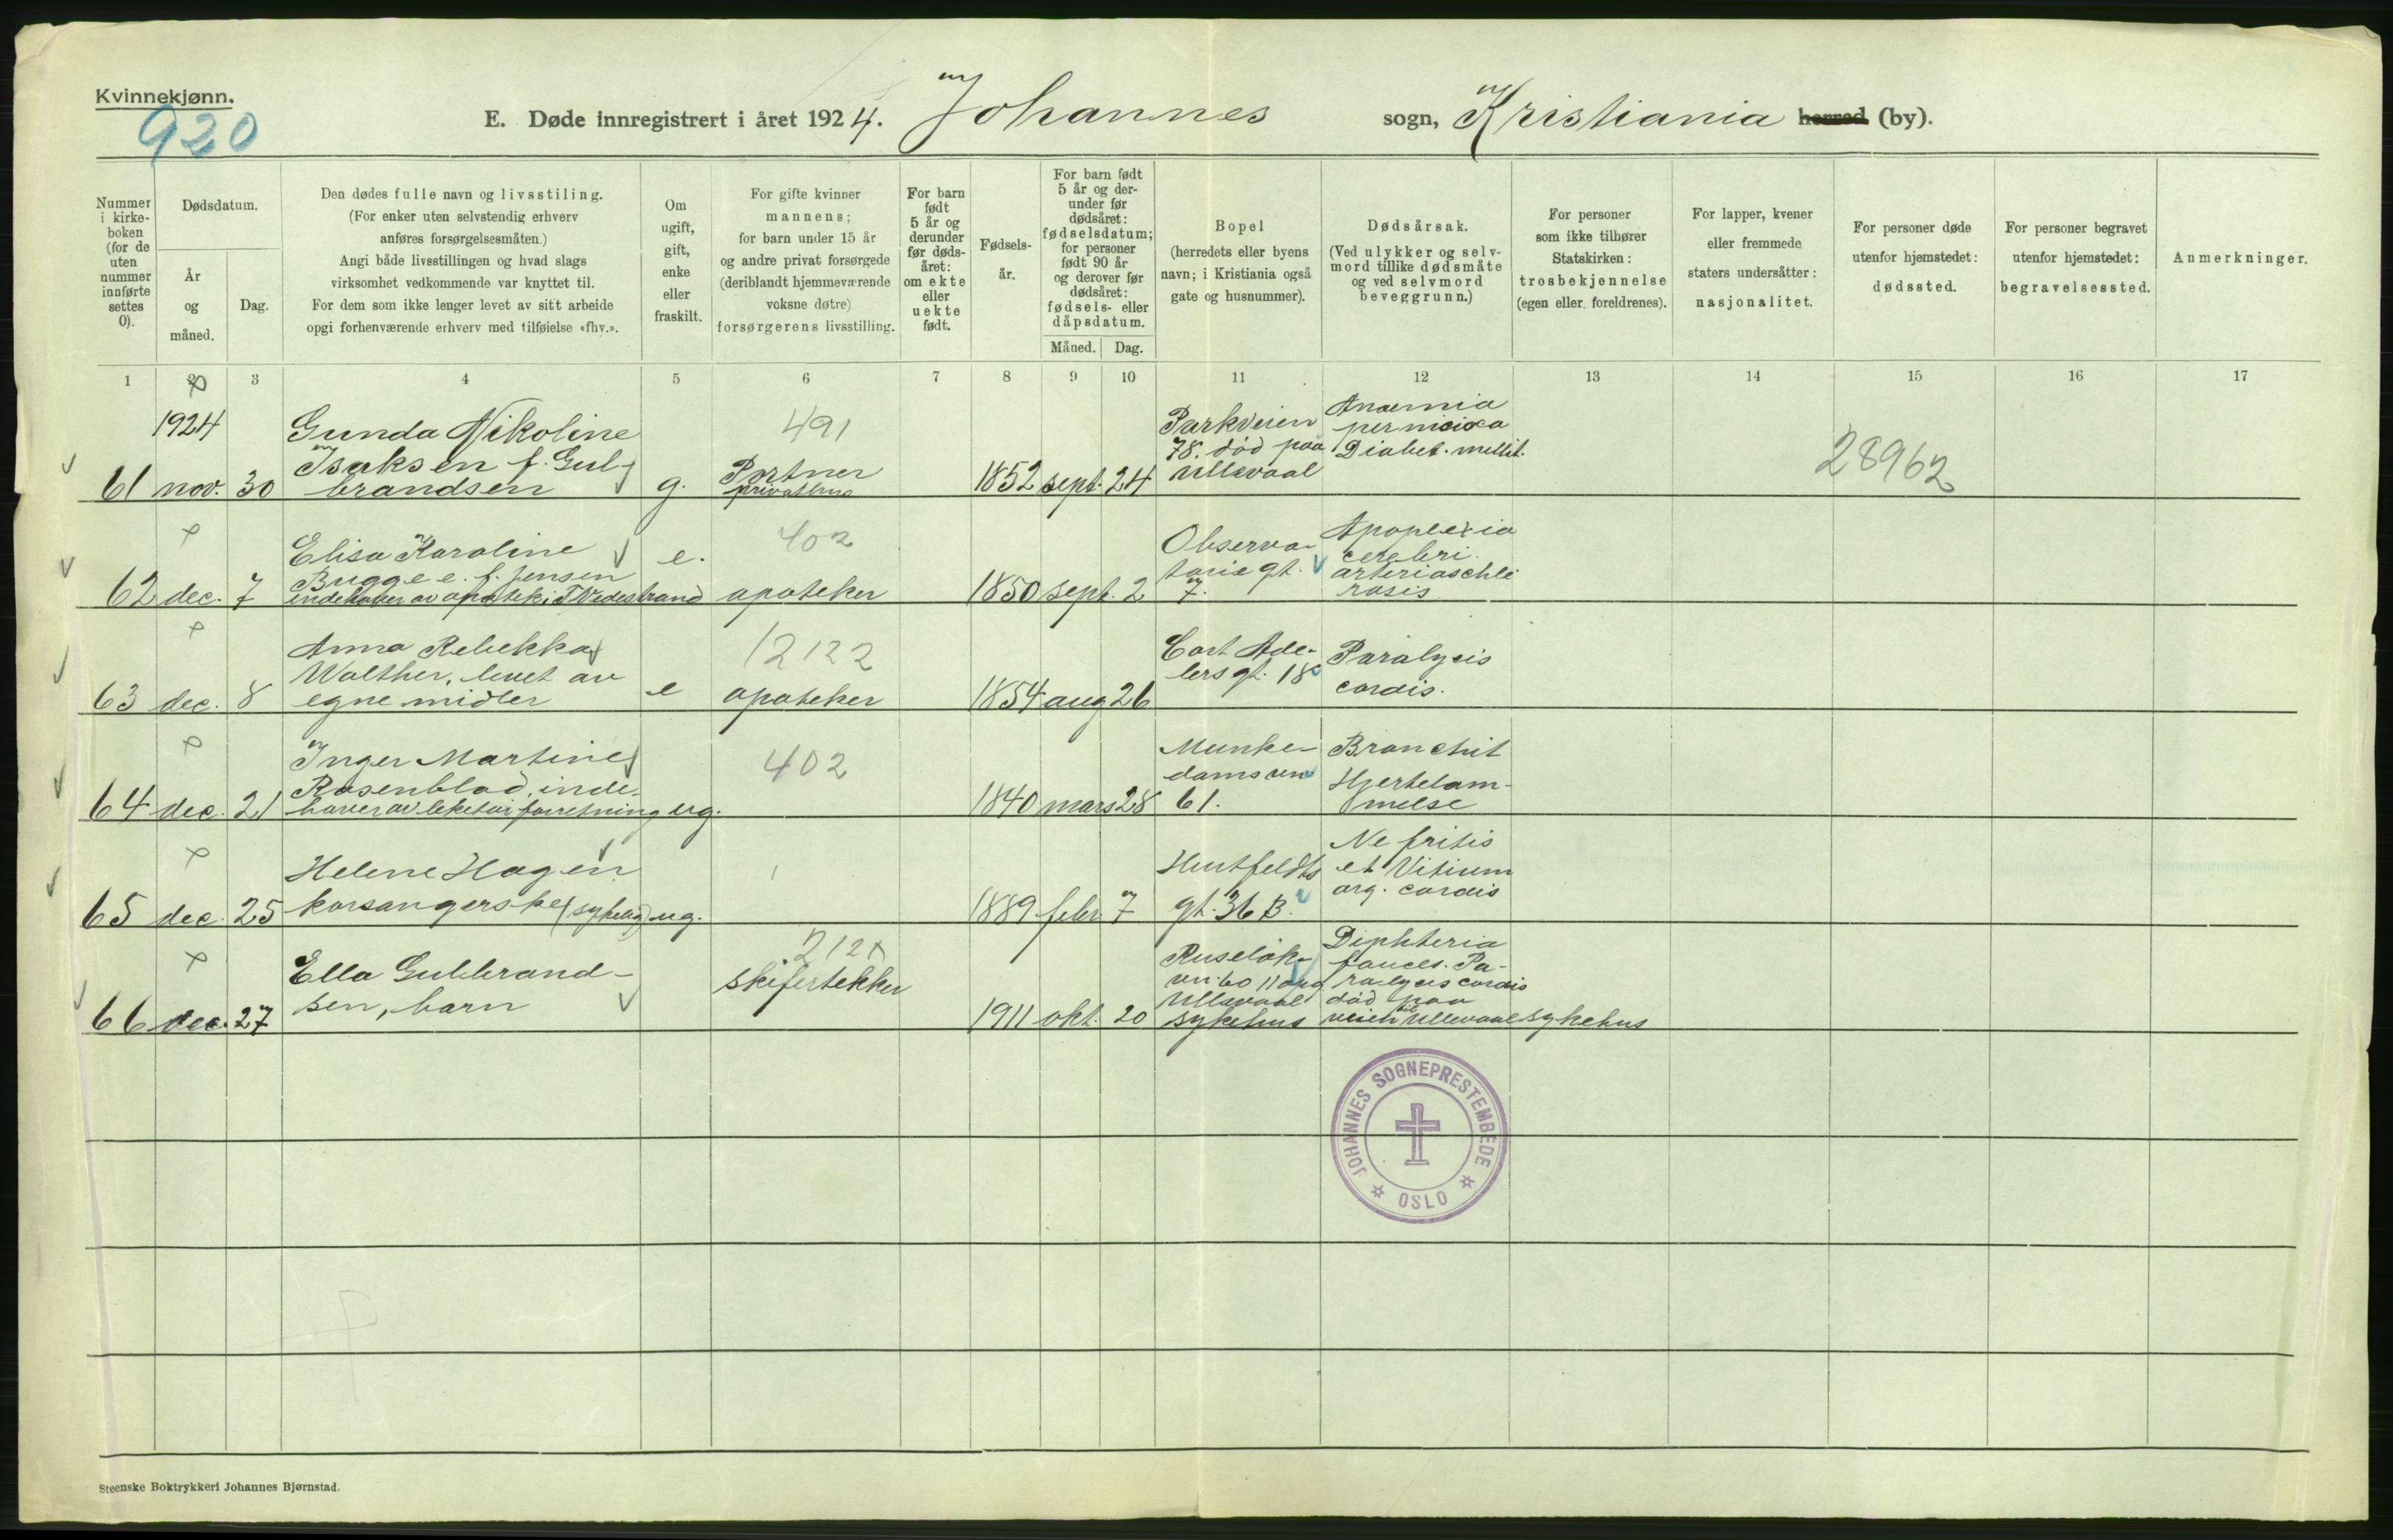 Kvinnekjønn.
920
E. Døde innregistrert i året 1924. Johannes sogn, Kristiania herred (by).
Nummer i kirke-boken (for de uten nummer innførte settes 0).
Dødsdatum.
År og måned.
Dag.
Den dødes fulle navn og livsstiling.
(For enker uten selvstendig erhverv
anføres forsørgelsesmåten.)
Angi både livsstillingen og hvad slags
virksomhet vedkommende var knyttet til.
For dem som ikke lenger levet av sitt arbeide
opgi forhenværende erhverv med tilføielse «fhv.».
Om ugift, gift, enke eller fraskilt.
For gifte kvinner
mannens;
for barn under 15 år
og andre privat forsørgede
(deriblandt hjemmeværende
voksne døtre)
forsørgerens livsstilling.
For barn født 5 år og derunder før døds-året: om ekte eller uekte født.
Fødsels-år.
For barn født 5 år og der-under før dødsåret: fødselsdatum; for personer født 90 år og derover før dødsåret: fødsels- eller dåpsdatum.
Måned. Dag.
Bopel
(herredets eller byens
navn; i Kristiania også
gate og husnummer).
Dødsårsak.
(Ved ulykker og selv-
mord tillike dødsmåte
og ved selvmord
beveggrunn.)
For personer
som ikke tilhører
Statskirken:
trosbekjennelse
(egen eller foreldrenes).
For lapper, kvener
eller fremmede
staters undersåtter:
nasjonalitet.
For personer døde
utenfor hjemstedet:
dødssted.
For personer begravet
utenfor hjemstedet:
begravelsessted.
Anmerkninger.
1 2 3 4 5 6 7 8 9 10 11 12 13 14 15 16 17
1924
61 nov. 30
Gunda Nikoline
Isaksen f. Gul-
brandsen
g.
491
Portner
1852 sept. 24
Parkveien
78. död paa
Ullevaal
Anaemia
perniciosa
Diabet. mellit.
28962
62 dec. 7
Elisa Karoline
Bugge e. f. Jensen
indehaver av apotek i Tvedestrand
e.
402
apoteker
1850 sept. 2
Observa-
torie gt.
7.
Apoplexia
cerebri.
arterioschle
rosis
63 dec. 8
Anna Rebekka
Walther, levet av
egne midler
e
12122
apoteker
1854 aug 26
Cort Ade-
lers gt. 18
Paralysis
cordis.
64 dec. 21
Inger Martine
Rosenblad, inde-
haver av leketøiforretning
ug.
402
1840 mars 28
Munke-
damsvn
61.
Bronchit
Hjertelam-
melse
65 dec. 25
Helene Hagen
korsangerske
ug.
1889 febr. 7
Huitfeldts
gt. 36 B.
Nefritis
et Vitium
org. cordis
66 dec. 27
Ella Gulbrand-
sen, barn
skifertekker
1911 okt. 20
Ruselök-
vn. 60
Ullevaal
sykehus
Diphteria
fauces. Pa-
ralysis cordis
död paa
veien til Ullevaal sykehus
JOHANNES SOGNEPRESTEMBEDE
OSLO
Steenske Boktrykkeri Johannes Bjørnstad.